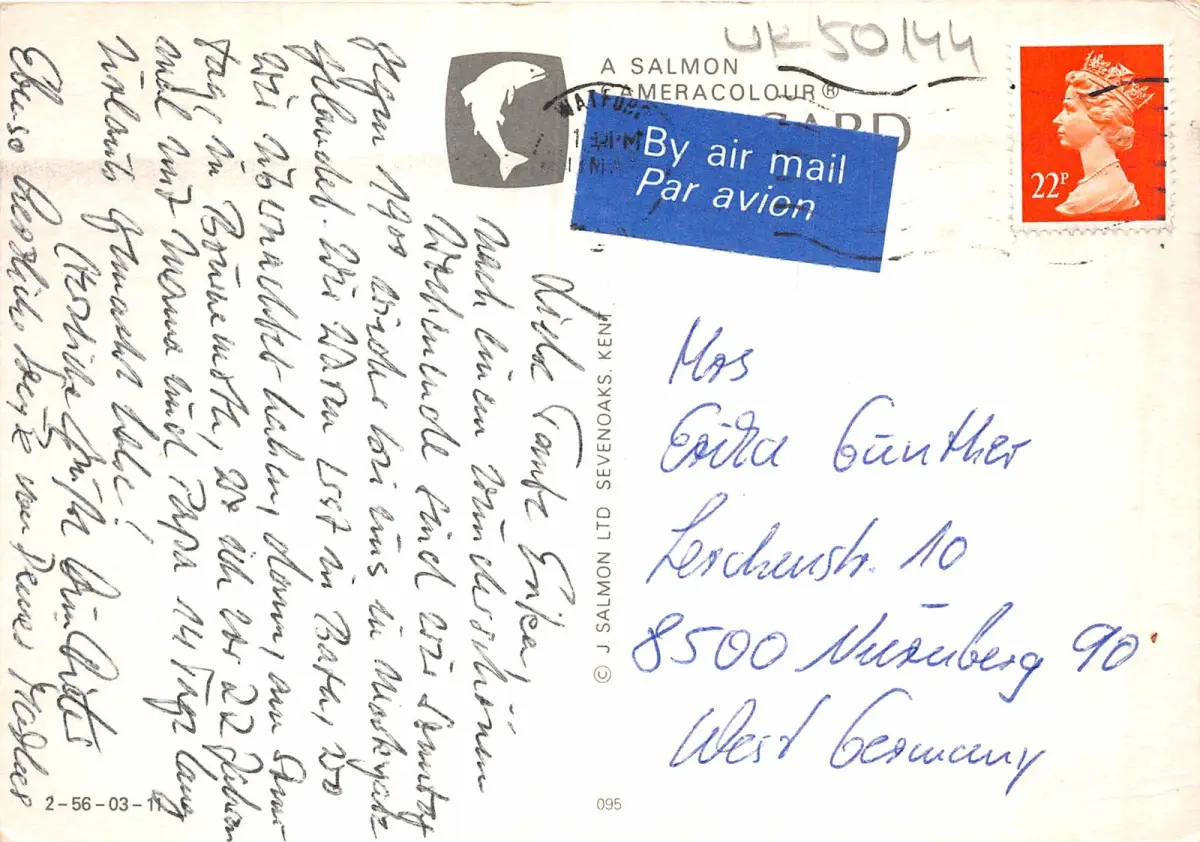 UK50144
A SALMON
CAMERACOLOUR®
CARD
WATFORD
By air mail
Par avion
22P
Liebe Tante Erika,
nach einem wunderschönen
Wochenende sind wir Sonntag
gegen 1900 wieder bei uns in
gelandet. Wir waren erst in Bath, wo
wir übernachtet haben, dann, am Sams
tag, in Bournemouth, wo ich vor 22 Jahren
mal mit Mama und Papa 14 Tage lang
Urlaub gemacht habe!
Herzliche Grüße
Ebenso herzliche von Deiner
© J. SALMON LTD SEVENOAKS. KENT.
Mrs
Erika Günther
Lerchenstr. 10
8500 Nürnberg 90
West Germany
2-56-03-11
095